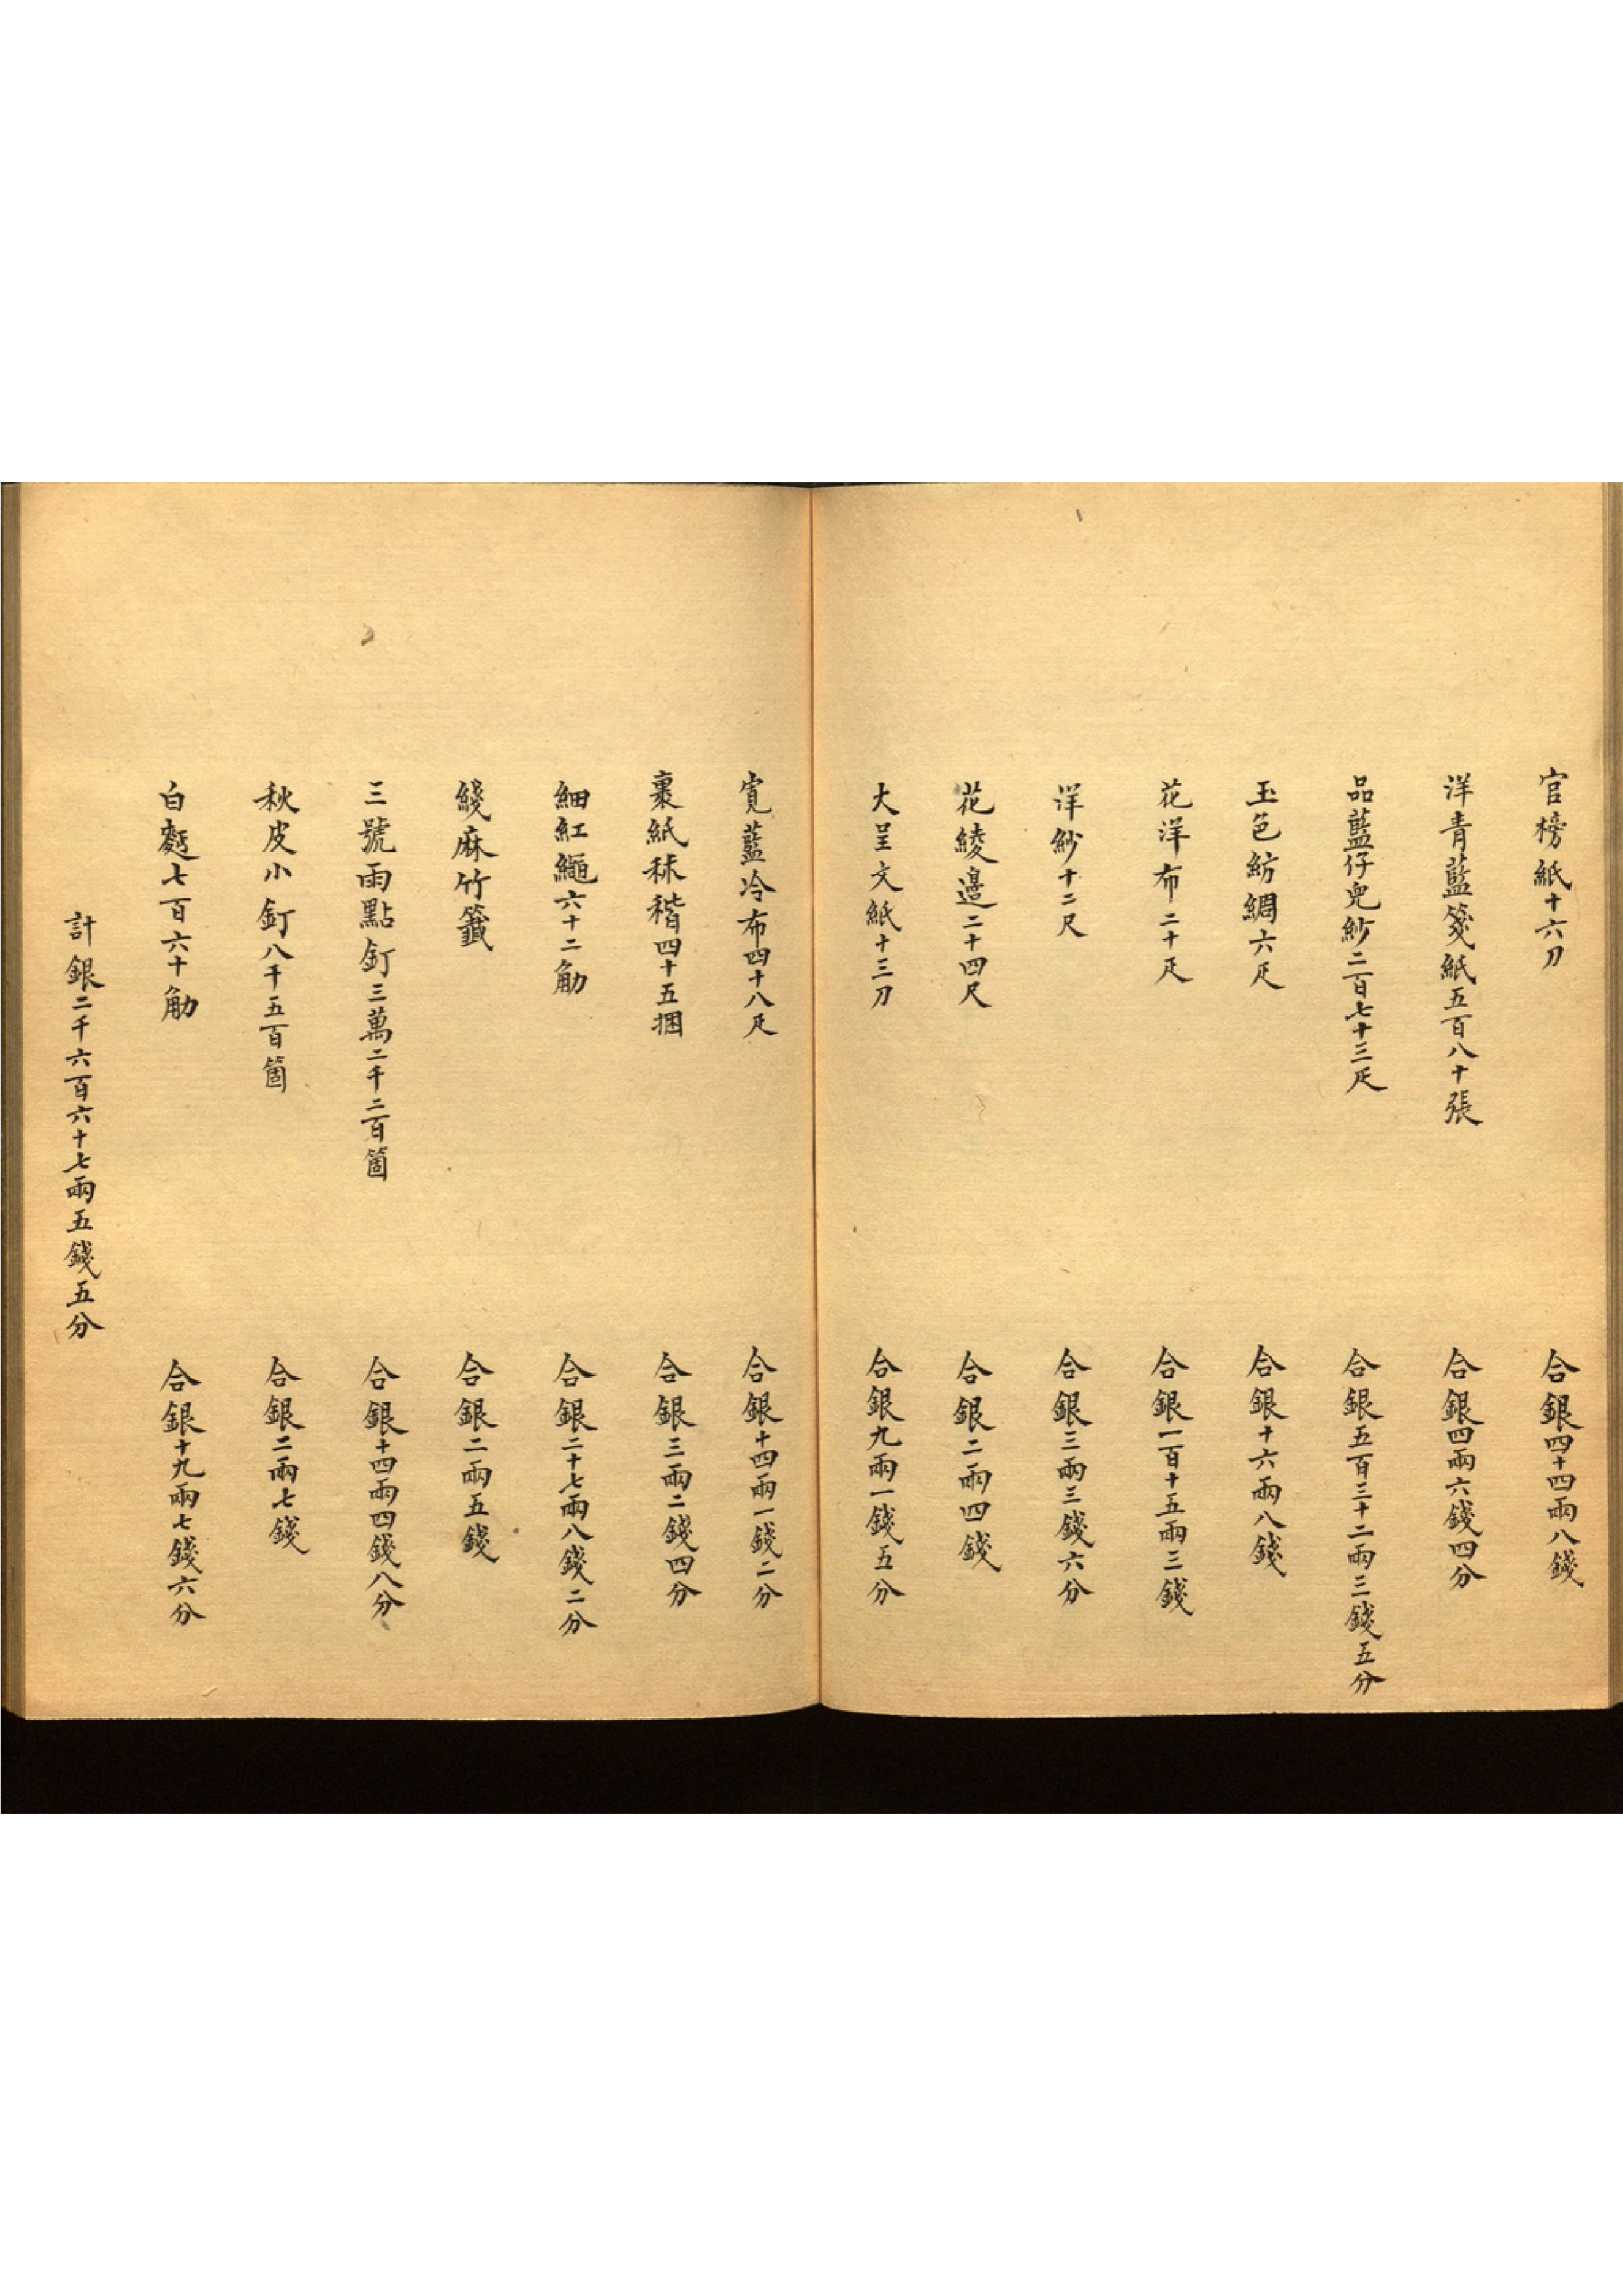 官榜紙十六刀 合銀四十四兩八錢
洋青藍箋紙五百八十張 合銀四兩六錢四分
品藍仔兜紗二百七十三疋 合銀五百三十二兩三錢五分
玉色紡綢六疋 合銀十六兩八錢
花洋布二十疋 合銀一百十五兩三錢
洋紗十二尺 合銀三兩三錢六分
花綾邊二十四尺 合銀二兩四錢
大呈文紙十三刀 合銀九兩一錢五分
寬藍冷布四十八疋 合銀十四兩一錢二分
裹紙秫稭四十五捆 合銀三兩二錢四分
細紅繩六十二觔 合銀二十七兩八錢二分
綫麻竹籤 合銀二兩五錢
三號雨點釘三萬二千二百箇 合銀十四兩四錢八分
秋皮小釘八千五百箇 合銀二兩七錢
白麪七百六十觔 合銀十九兩七錢六分
計銀二千六百六十七兩五錢五分